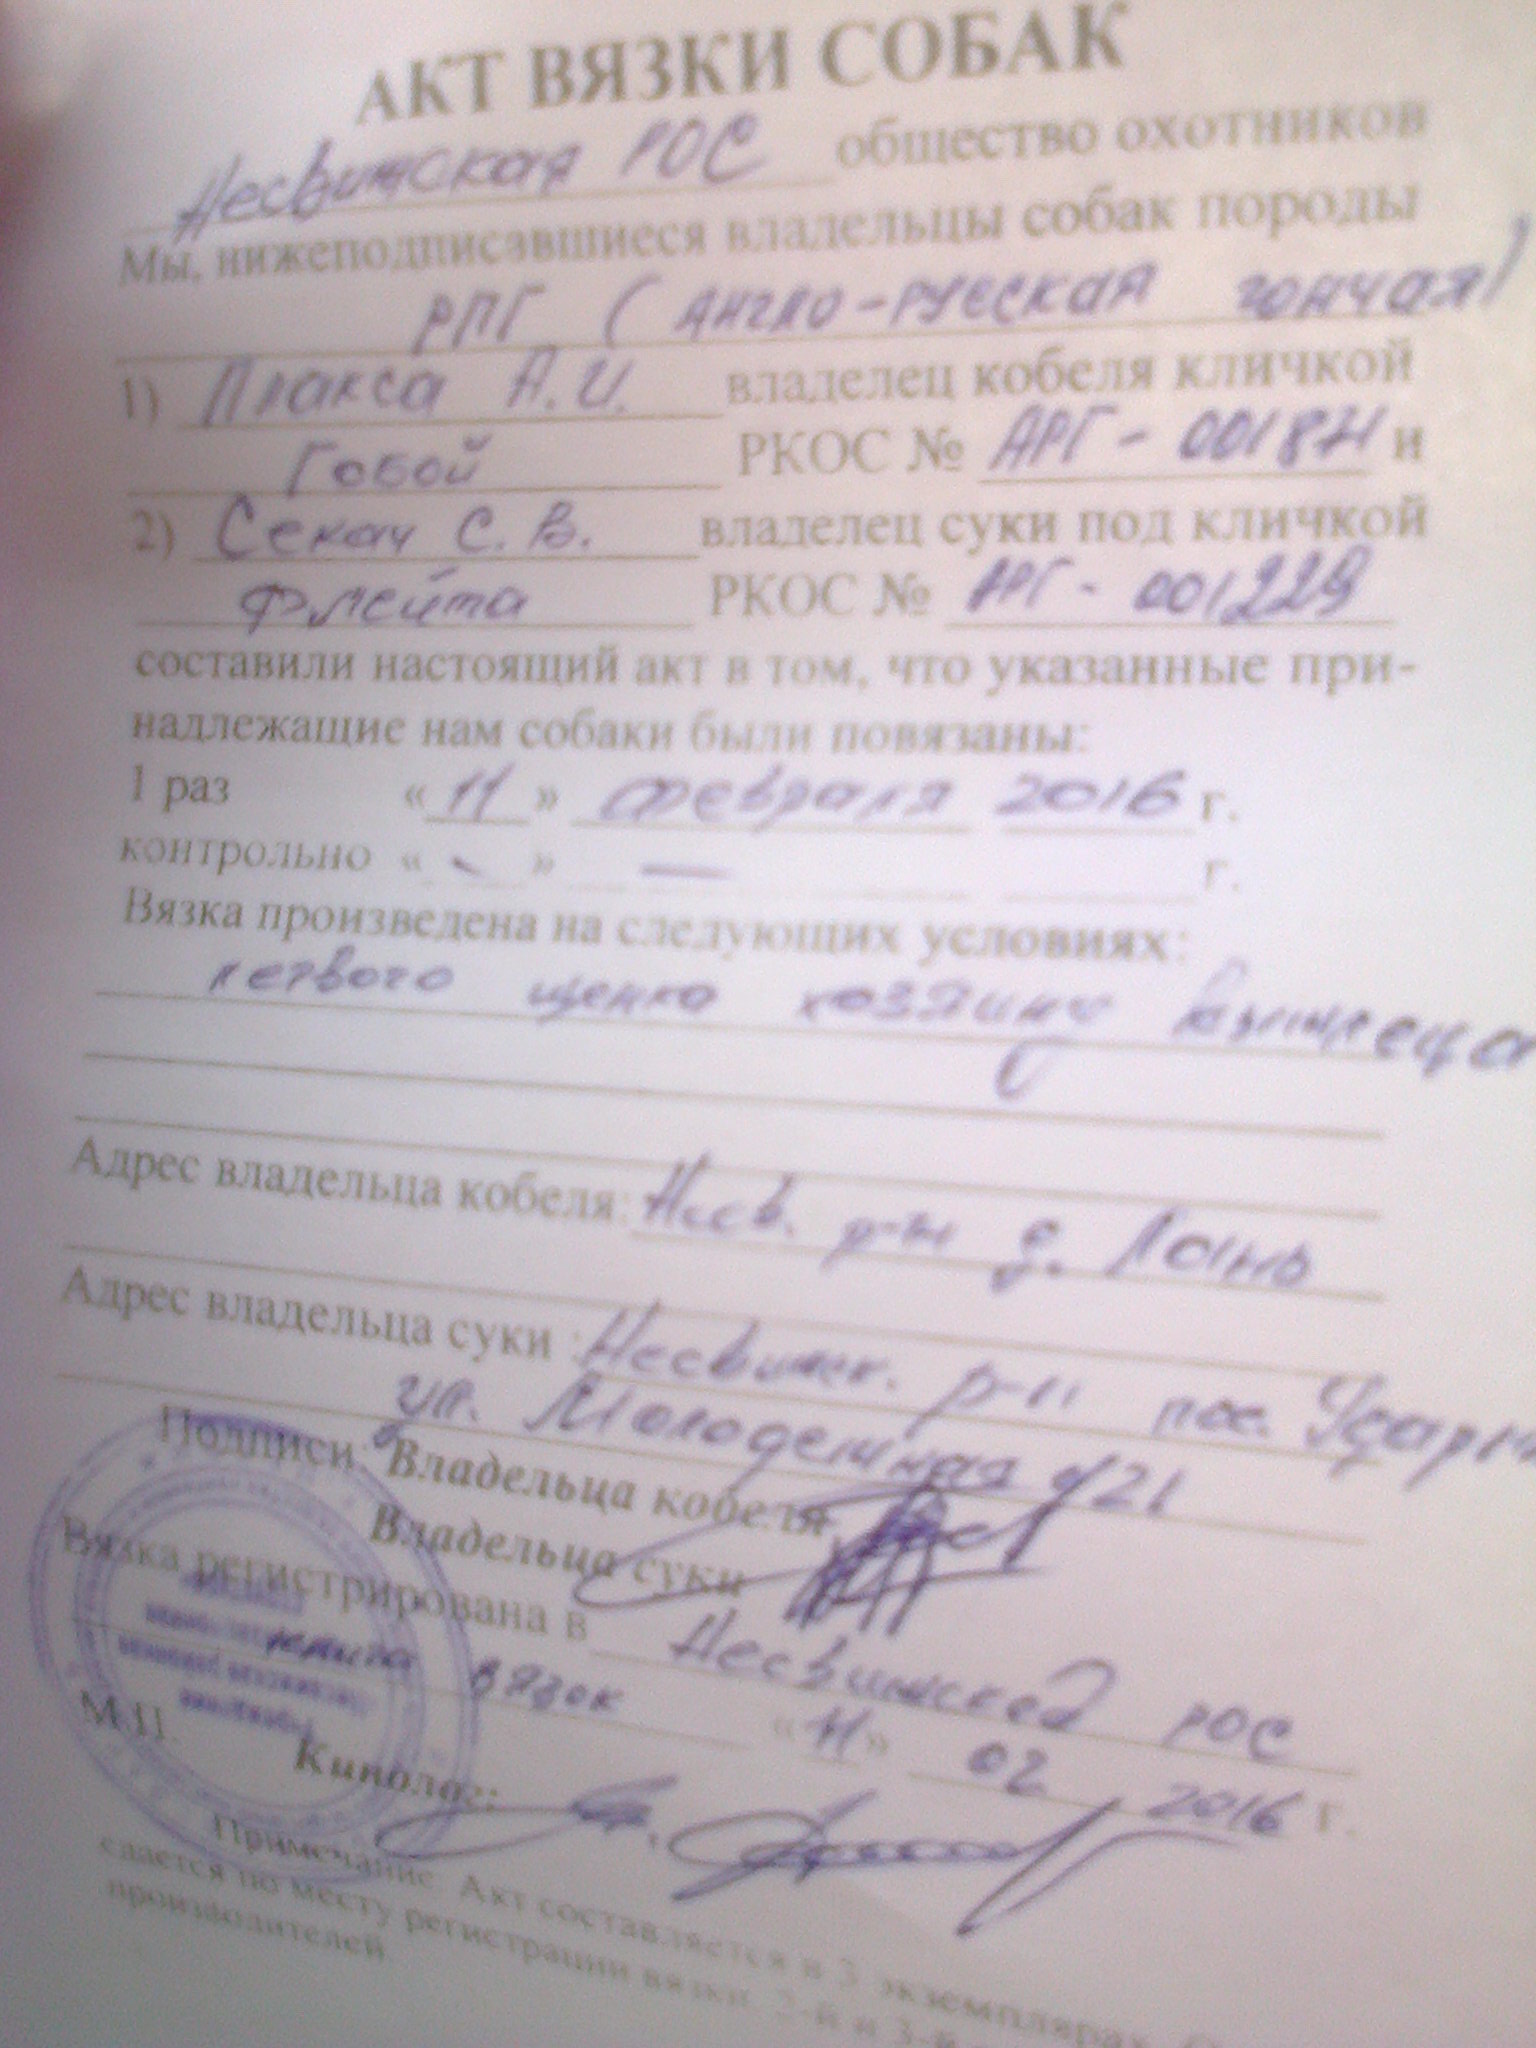 АКТ ВЯЗКИ СОБАК
Несвижская РОС общество охотников
Мы, нижеподписавшиеся владельцы собак породы
РПГ (Англо-русская гончая)
1) Плакса А.И. владелец кобеля кличкой
Гобой РКОС № АРГ - 001871 и
2) Секач С.В. владелец суки под кличкой
Флейта РКОС № АРГ - 001229
составили настоящий акт в том, что указанные при-
надлежащие нам собаки были повязаны:
1 раз «11» февраля 2016 г.
контрольно « - » — г.
Вязка произведена на следующих условиях:
первого щенка хозяину
Адрес владельца кобеля: Несв. р-н д. Лань
Адрес владельца суки : Несвижск. р-н пос.
ул. Молодежная 21
Подписи: Владельца кобеля
Владельца суки
Вязка регистрирована в Несвижской РОС
книга вязок «11» 02 2016 г.
М.П.
Кинолог:
Примечание. Акт составляется в 3 экземплярах.
сдается по месту регистрации вязки, 2-й и 3-й
производителей.